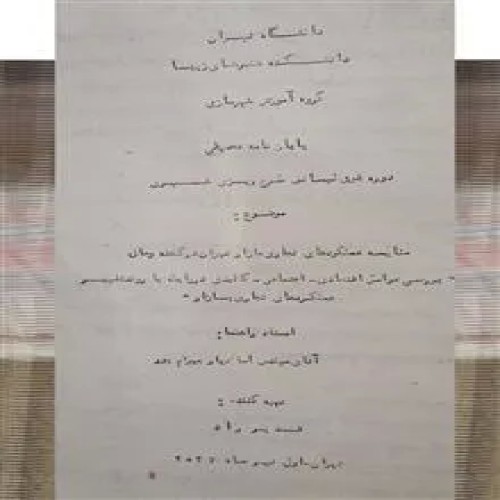 دانشگاه تهران
دانشکده هنرهای زیبا
گروه آموزش شهرسازی
پایان نامه تحصیلی
دوره فوق لیسانس طرح ریزی شهری
موضوع :
مقایسه عملکردهای تجاری بازار تهران در گذشته و حال
بررسی عوامل اقتصادی - اجتماعی - کالبدی در رابطه با
عملکردهای تجاری بازار
استاد راهنما :
آقای مهندس
تهیه کننده :
تهران - اول ماه